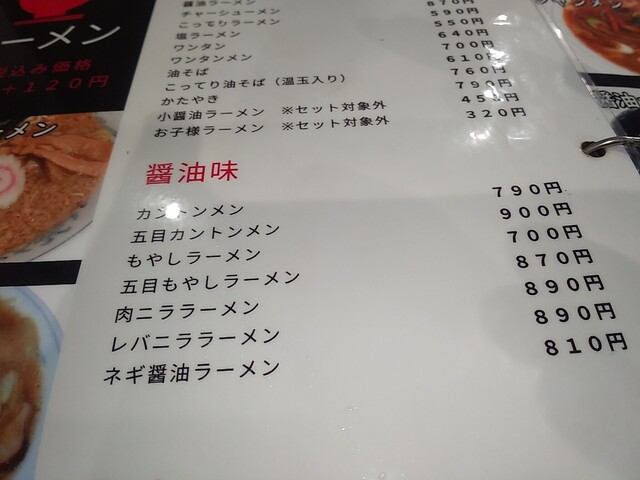 ーメン
込み価格
+120円
ーメン
醤油ラーメン
チャーシューメン 870円
こってりラーメン 590円
塩ラーメン 550円
ワンタン 640円
ワンタンメン 700円
油そば 610円
こってり油そば（温玉入り） 760円
かたやき 790円
小醤油ラーメン ※セット対象外 450円
お子様ラーメン ※セット対象外 320円
醤油味
カントンメン 790円
五目カントンメン 900円
もやしラーメン 700円
五目もやしラーメン 870円
肉ニララーメン 890円
レバニララーメン 890円
ネギ醤油ラーメン 810円